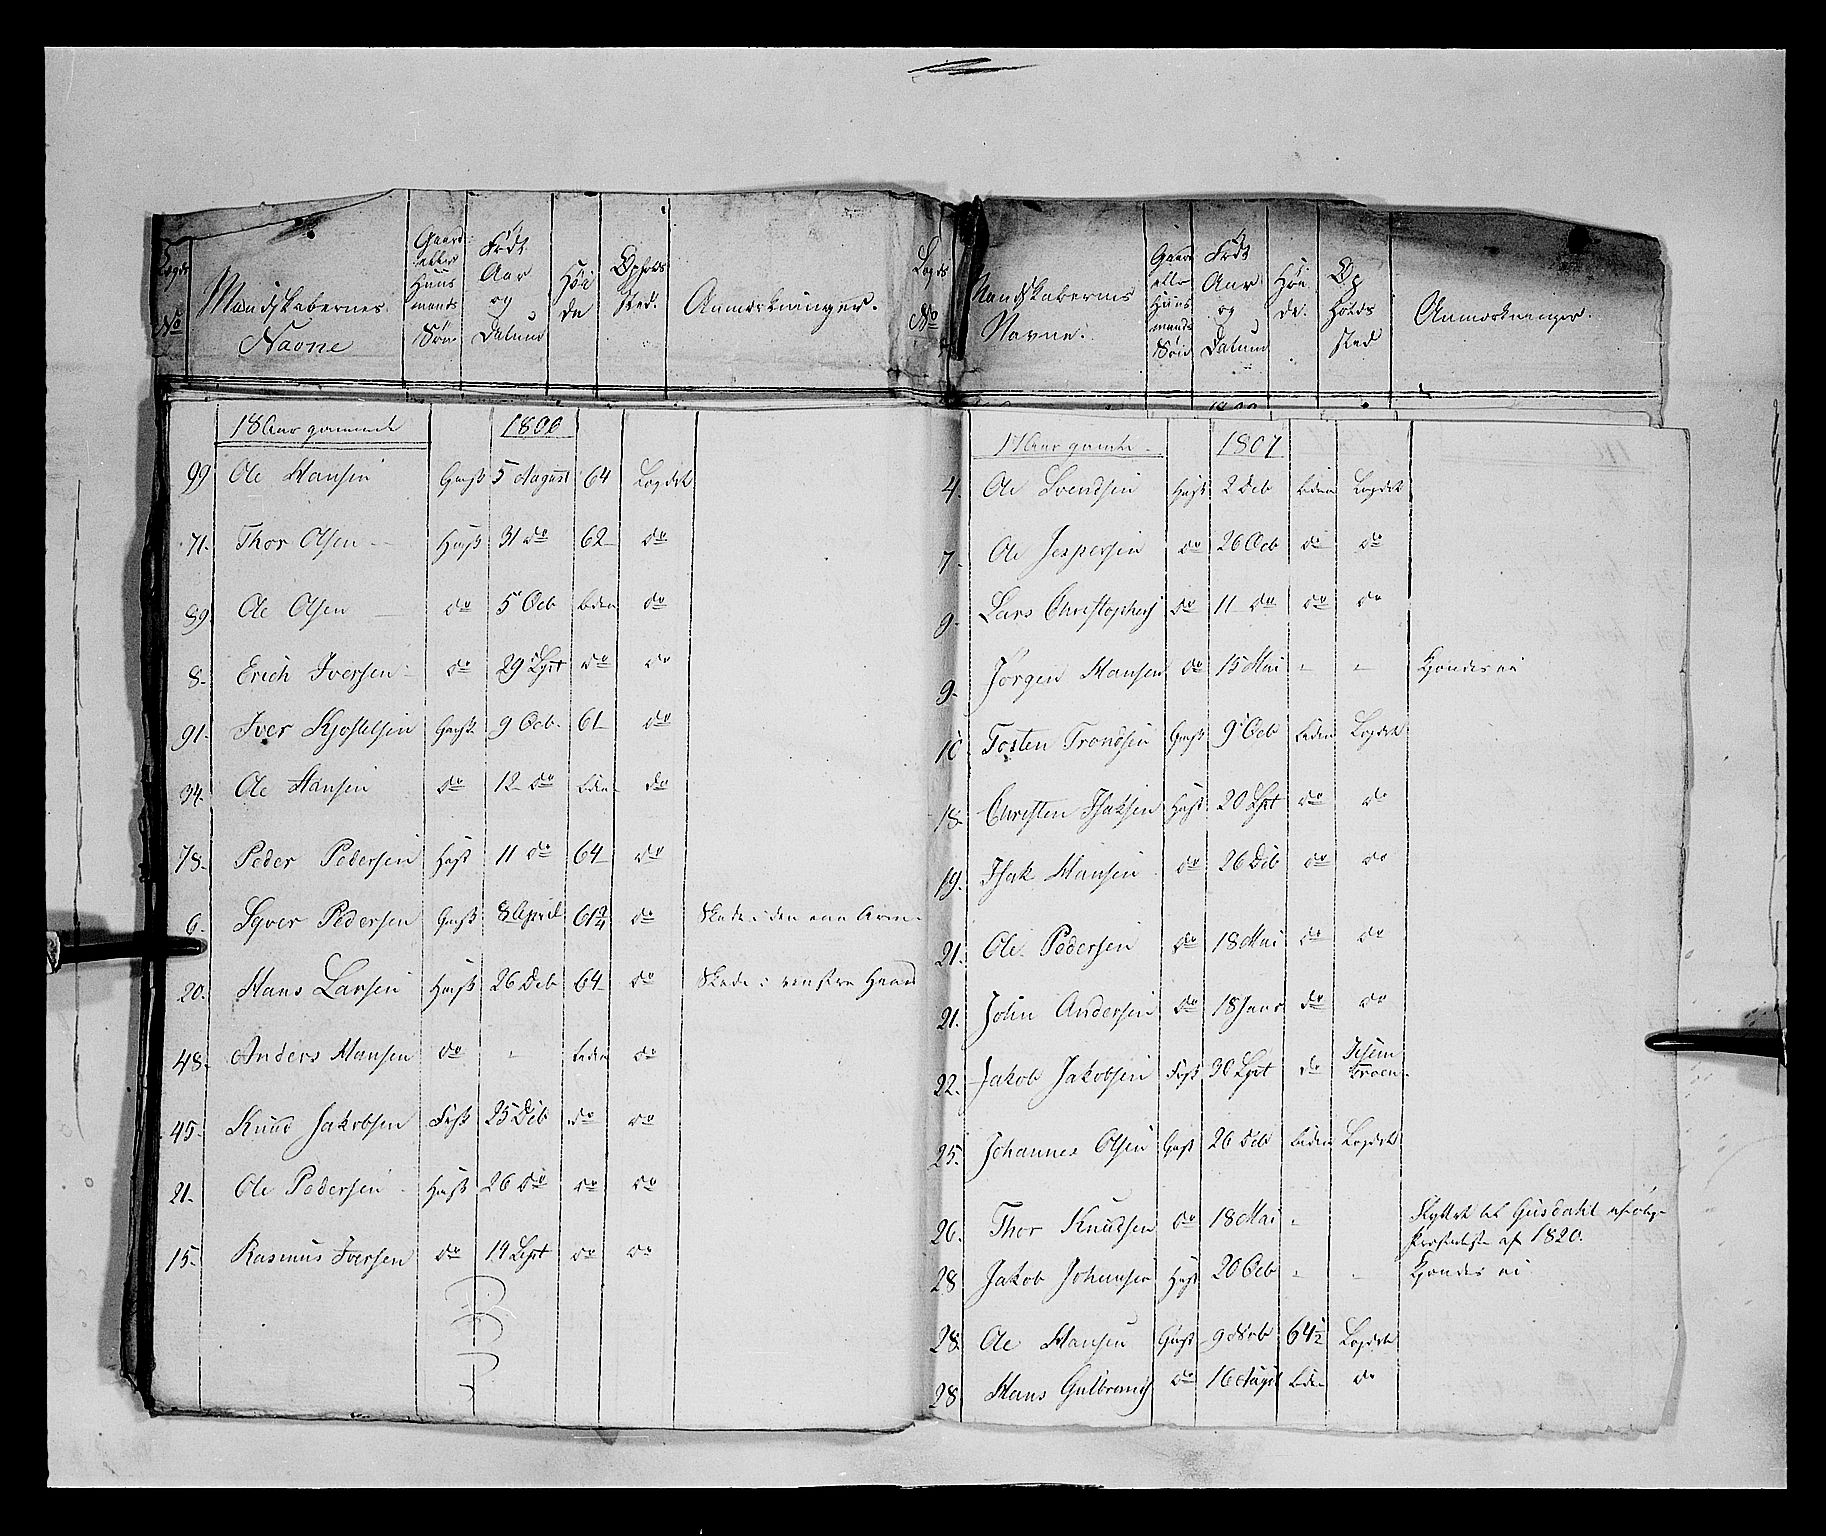 Lægds No Mandskabernes Navne Gaard eller Huus mands Søn Født Aar og Datum Høi de Opholds sted. Anmærkninger.
18 Aar gamle 1806
99 Ole Hansen Gms 5 August 64 Lægdet
71. Thor Olsen Hms 31 do 62 do
89 Ole Olsen do 5 Ocb liden do
8. Erich Iversen do 29 Sept do do
91. Iver Kjøstelsen Gms 9 Ocb. 61 do
34. Ole Hansen do 12 do liden do
78. Peder Pedersen Hms 11 do 64 do
6. Syver Pedersen Gms 8 April 61 3/4 do Skade i den ene Arm
20. Hans Larsen Hms 26 Deb 64 do Skade i venstre Haand
48. Anders Hansen do - liden do
45. Knud Jakobsen 25 Deb do do
21. Ole Pedersen Hms 26 do do do
15. Rasmus Iversen do 14 Sept do do
Lægds No Mandskabernes Navne. Gaard eller Huus mands Søn Født Aar og Datum Høi de. Op holds sted Anmærkninger.
17 Aar gamle 1807
4. Ole Svendsen Hms 2 Deb liden Lægdet
7. Ole Jespersen do 26 Ocb do do
9. Lars Christophers do 11 do do do
9. Jørgen Hansen do 15 Mai - - Kjendes ei
10. Tosten Trondsen Gms 9 Ocb liden Lægdet
18. Christen Isaksen Hms 20 Sept do do
19. Isak Hansen do 26 Deb do do
21. Ole Pedersen do 18 Mai do do
21. John Andersen do 18 Janr do do
22. Jakob Jakobsen 30 Sept do
25. Johannes Olsen Gms 26 Deb liden Lægdet
26. Thor Knudsen do 18 Mai - Flyttet til Gusdahl
af 1820.
28 Jakob Johansen Hms 20 Ocb - - Kjendes ei
28. Ole Hansen Gms 9 Nob 64 1/2 Lægdet
28 Hans Gulbrands do 16 Augst liden do